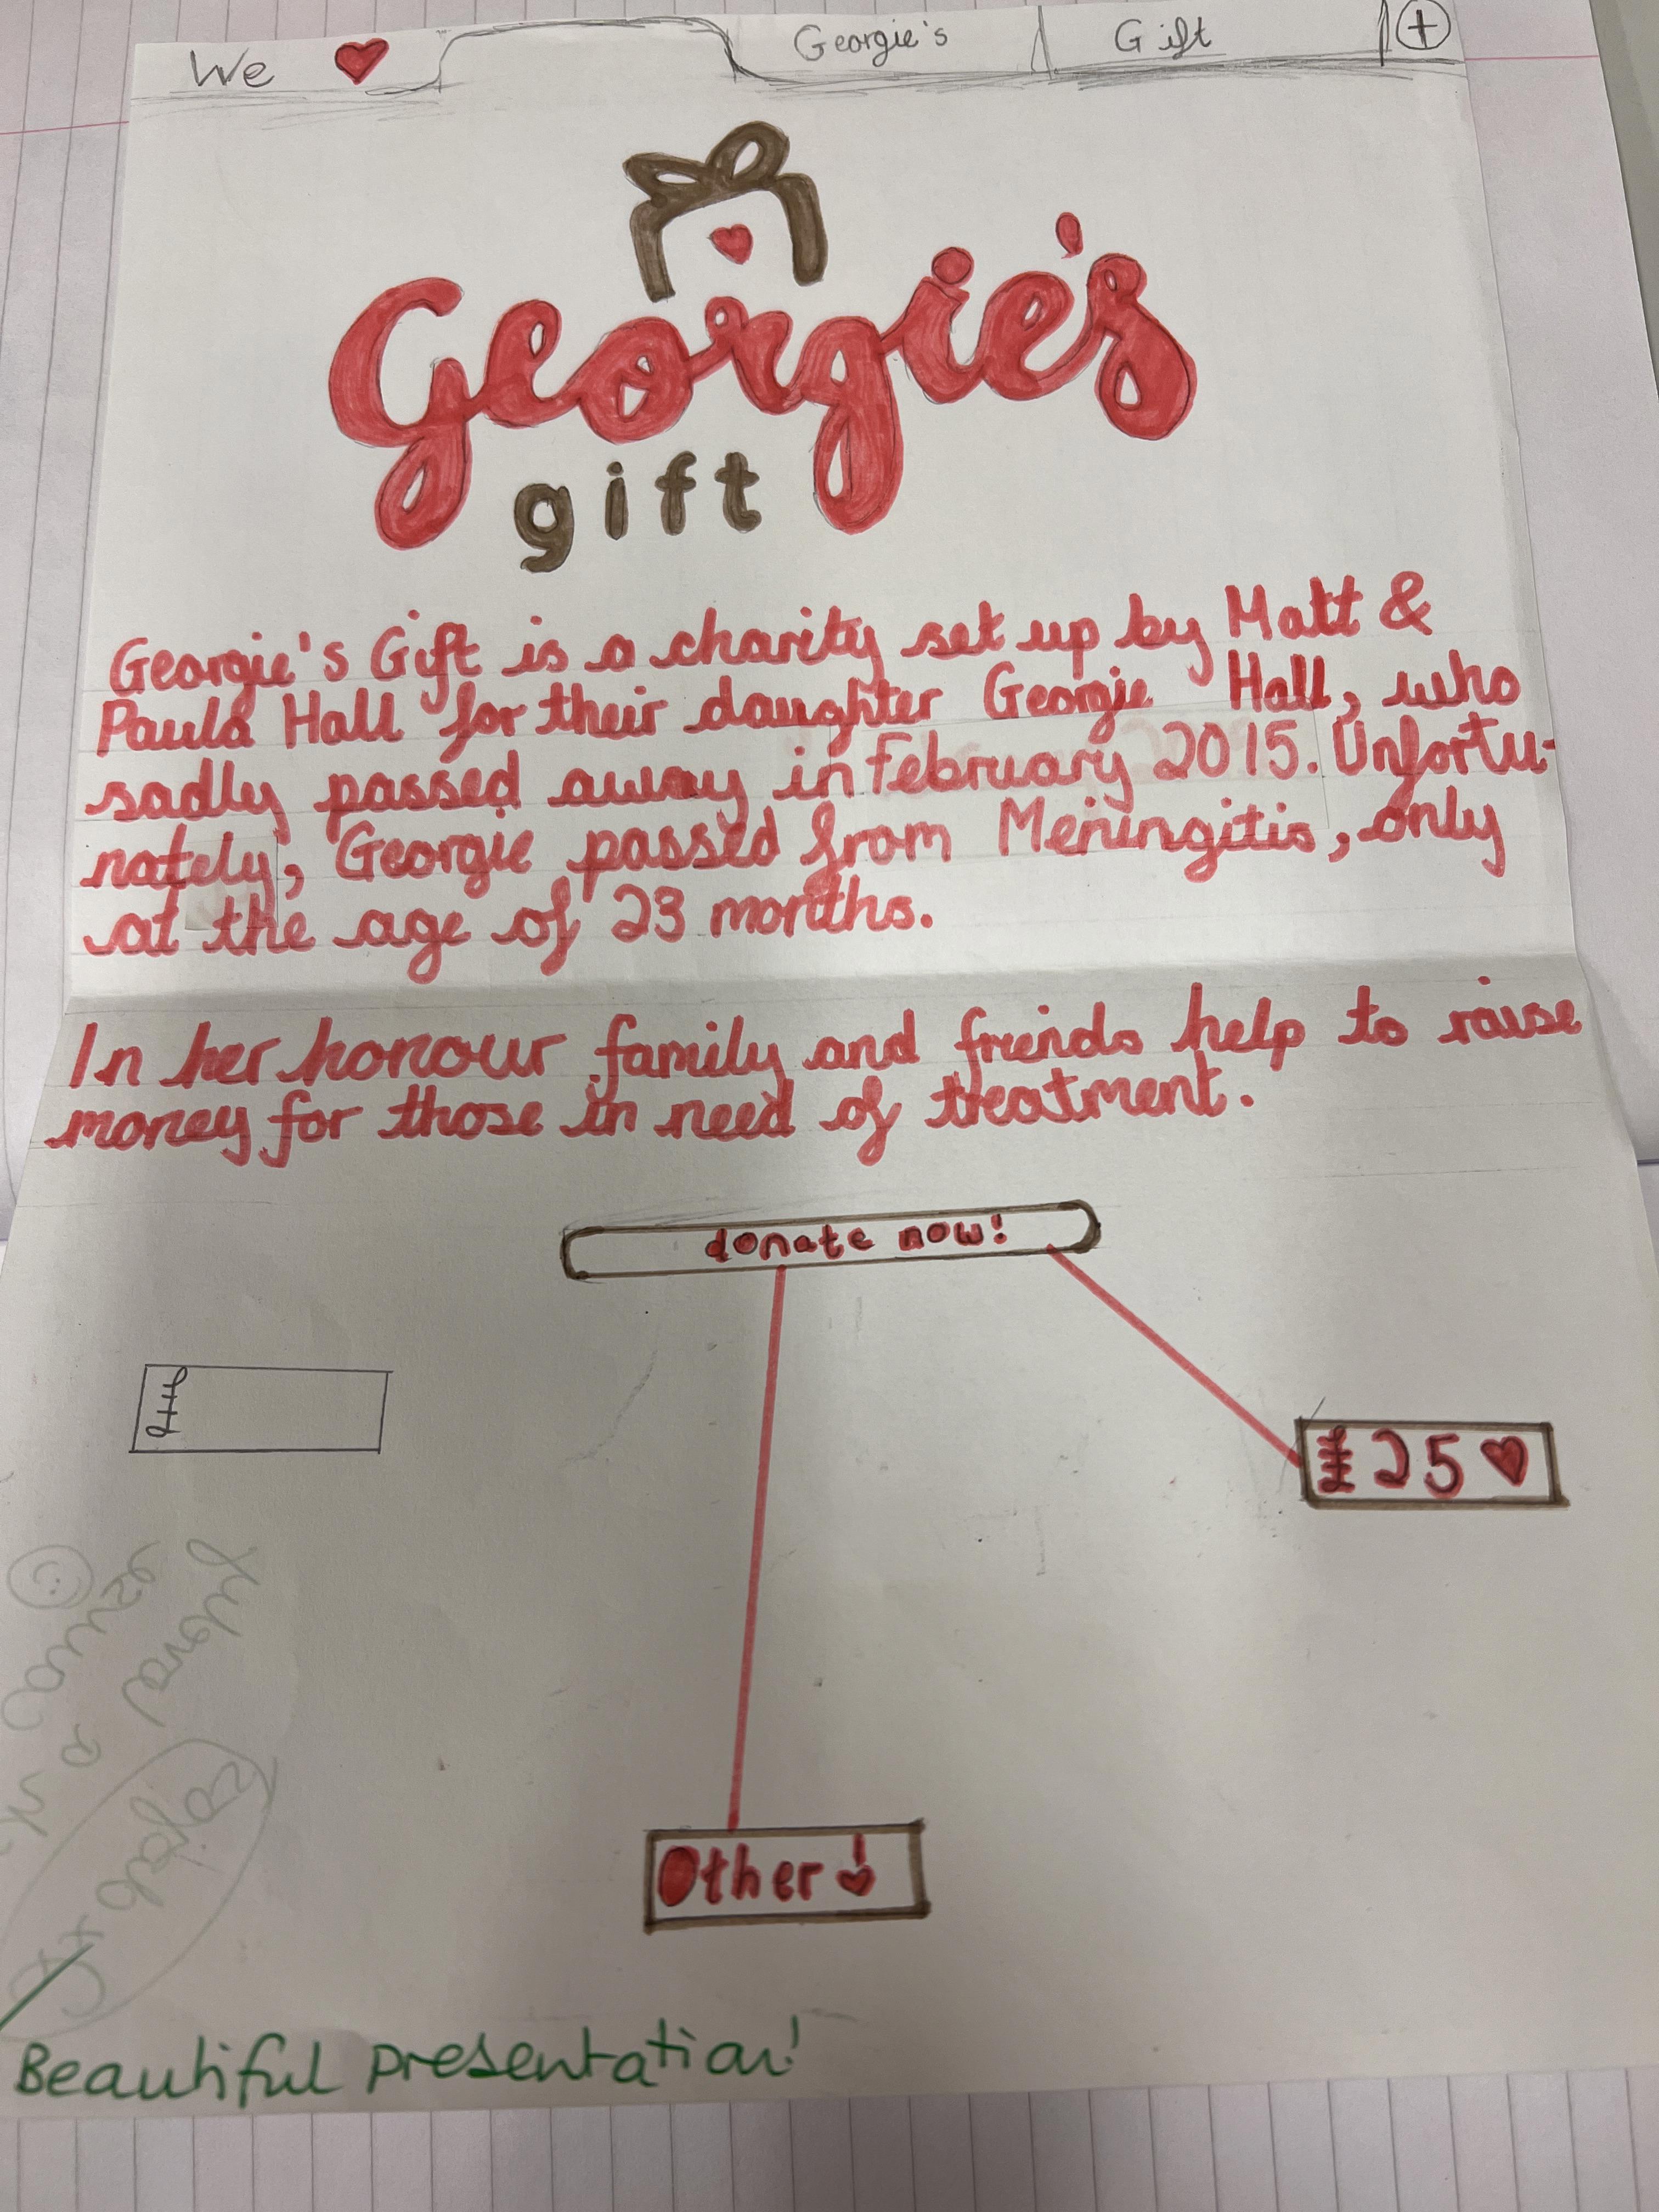 We ❤ Georgie's Gift +
Georgie's
gift
Georgie's Gift is a charity set up by Matt &
Paula Hall for their daughter Georgie Hall, who
sadly passed away in February 2015. Unfortu-
nately, Georgie passed from Meningitis, only
at the age of 23 months.
In her honour family and friends help to raise
money for those in need of treatment.
donate now!
£
£25 ♥
Other
Beautiful presentation!